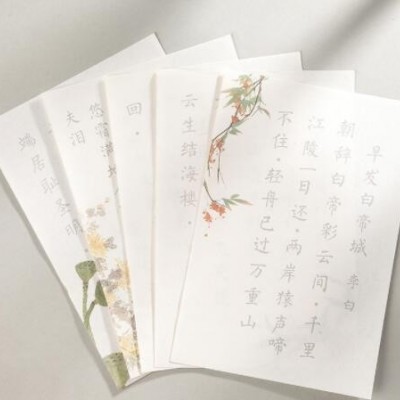 早发白帝城 李白
朝辞白帝彩云间。千里
江陵一日还。两岸猿声啼
不住。轻舟已过万重山
云生结海楼。
回。
夫泪
端居耻圣明